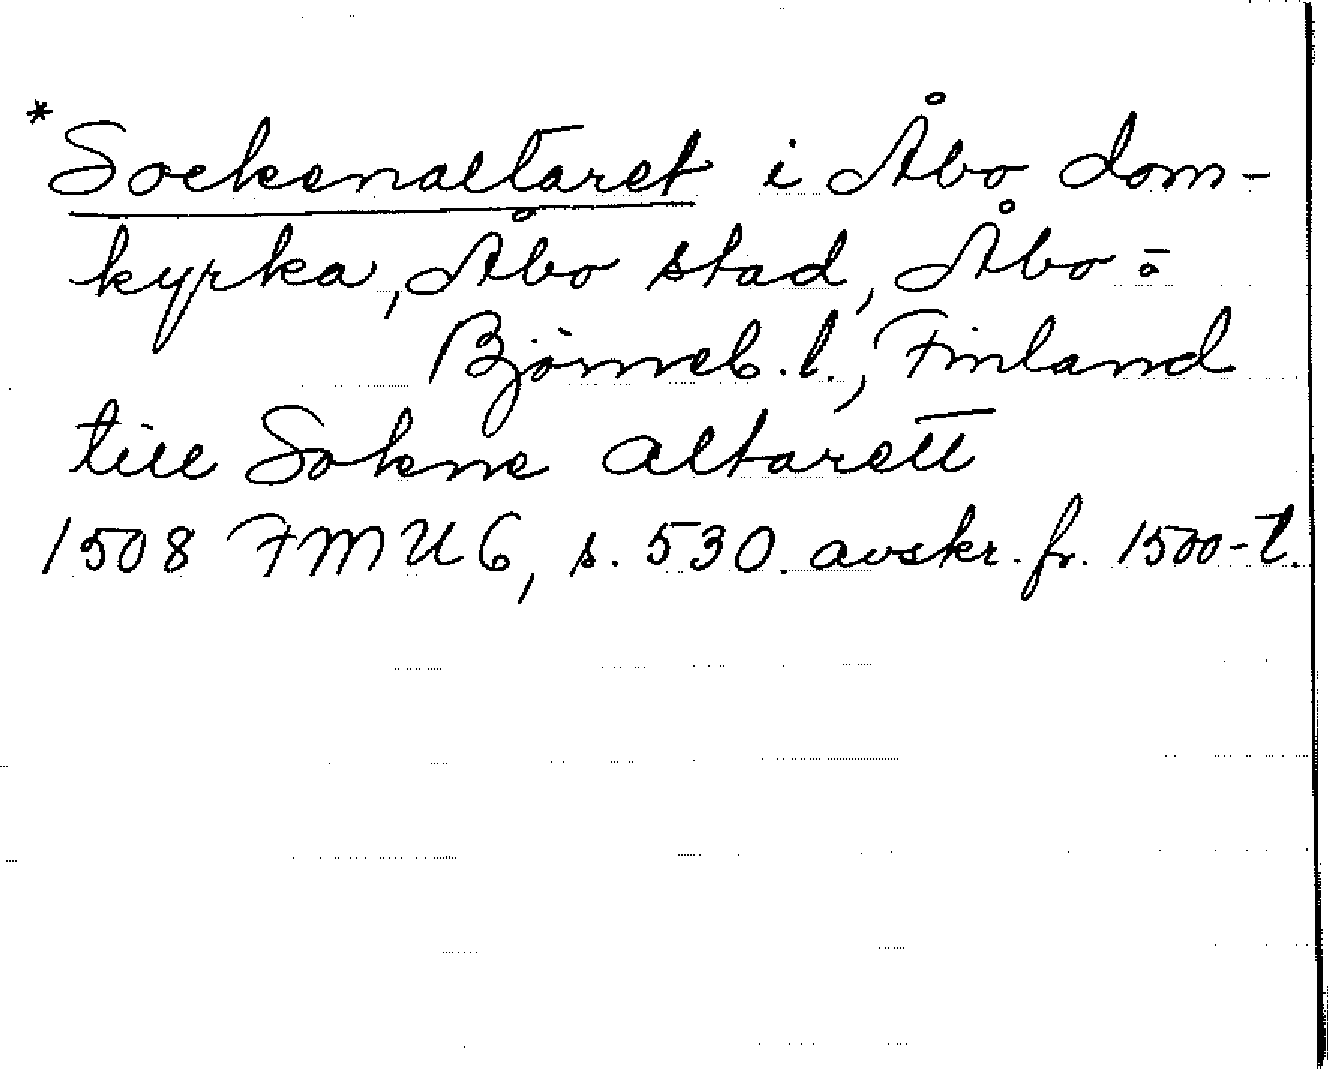 *Sockenaltaret i Åbo dom-
kyrka, Åbo stad, Åbo-
Björneb. l., Finland
till Sokne altarett
1508 FMU 6, s. 530. avskr. fr. 1500-t.